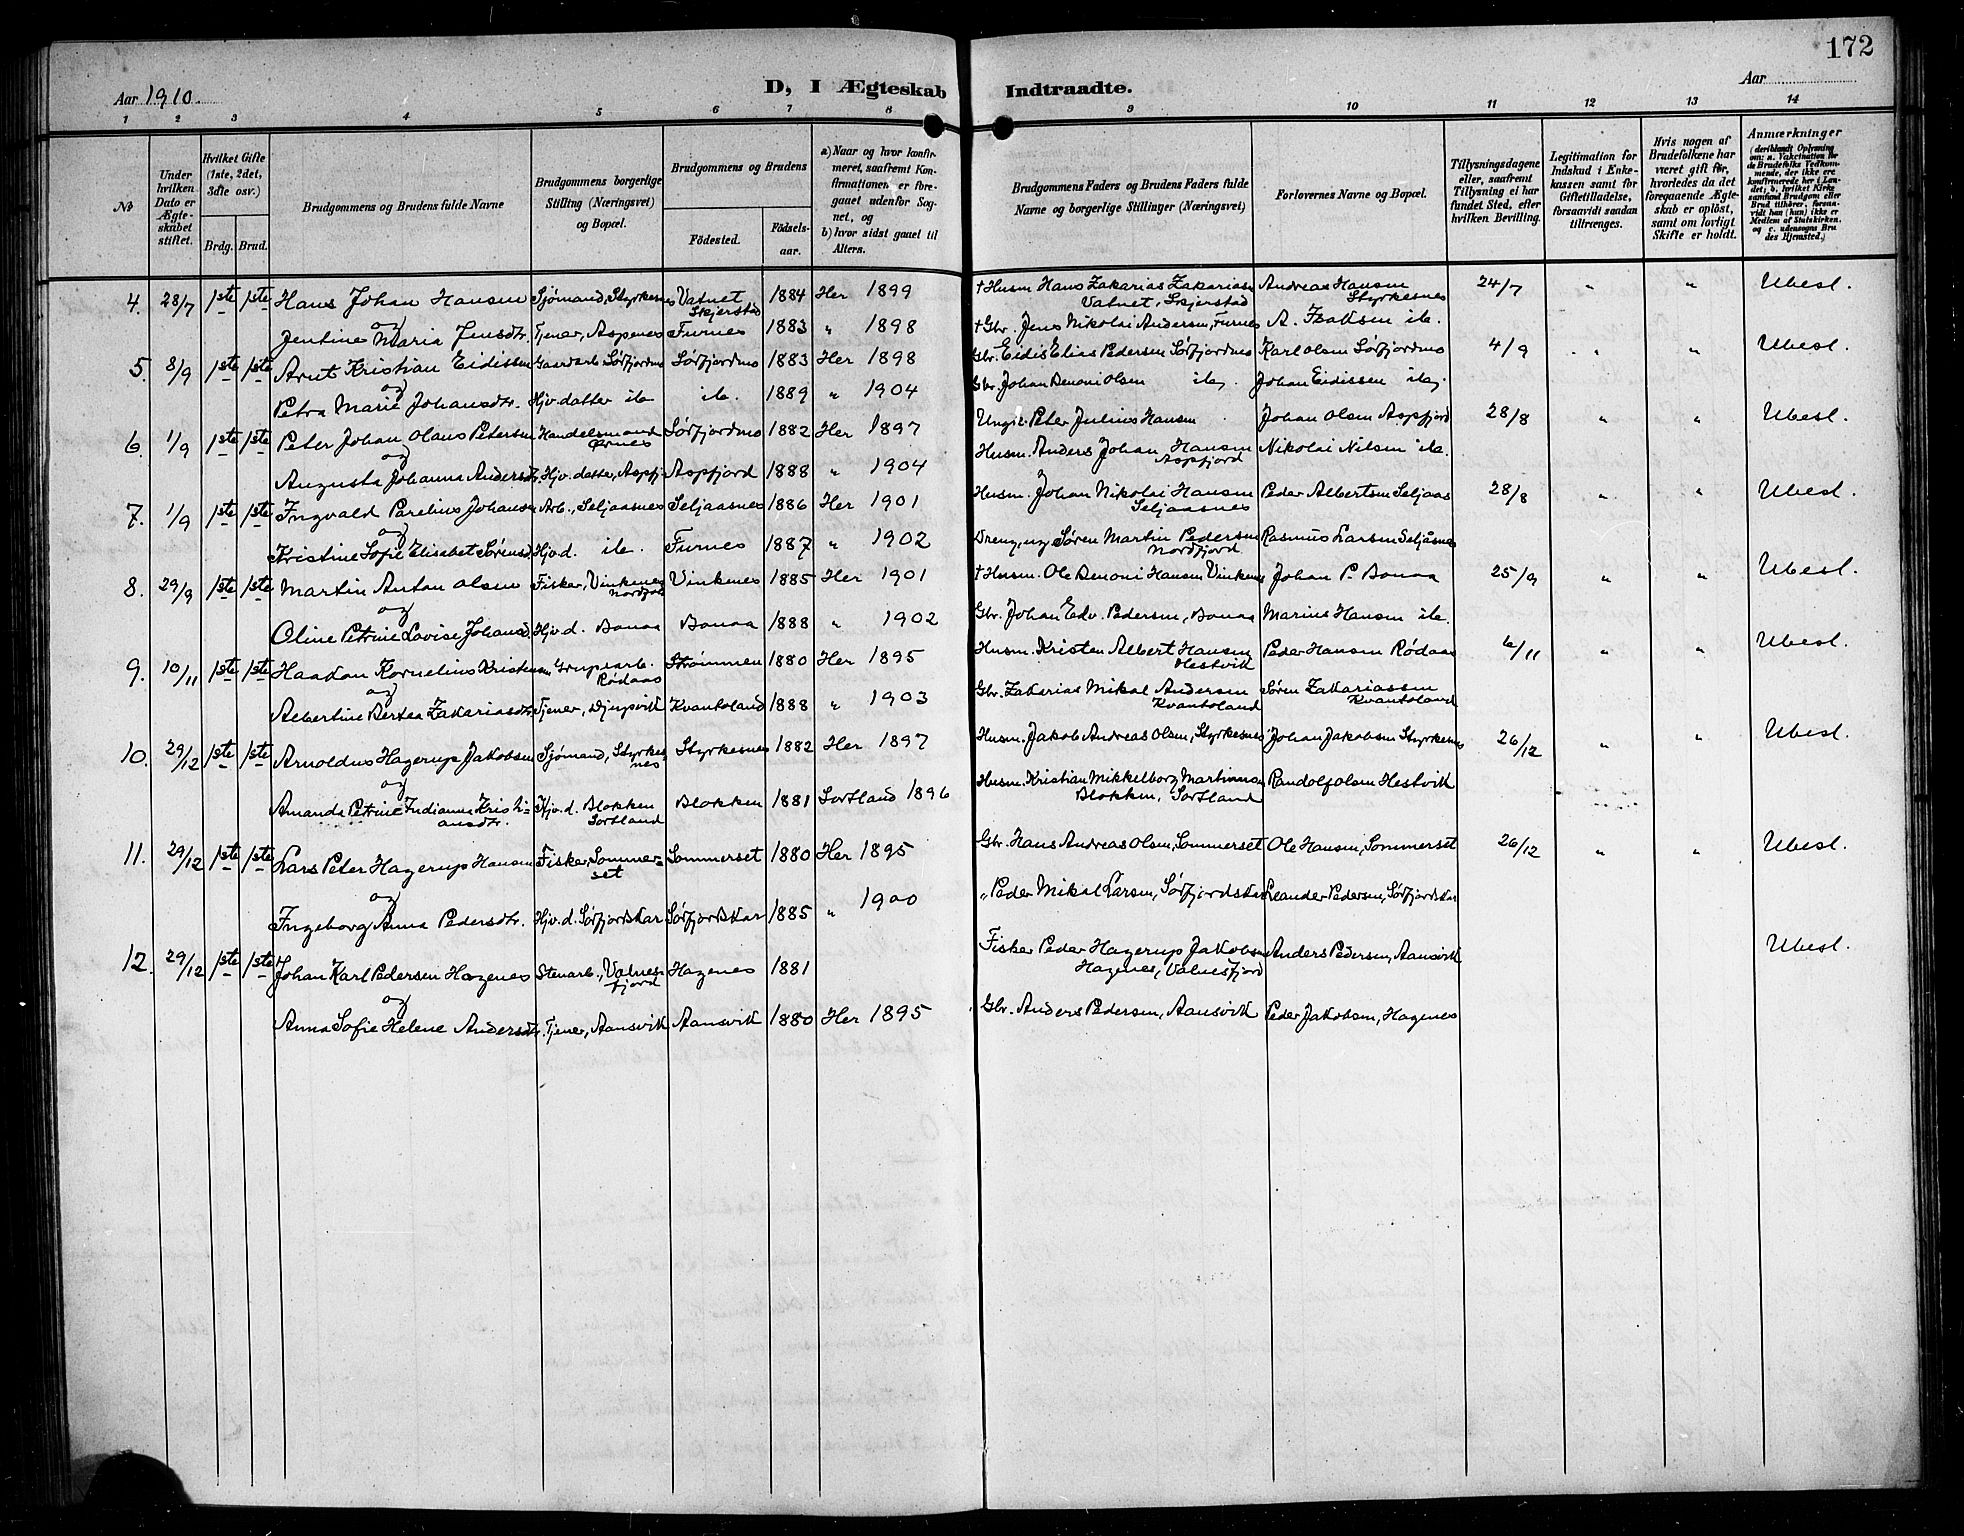 172
Aar 1910.
D, I Ægteskab Indtraadte.
Aar
1 2 3 4 5 6 7 8 9 10 11 12 13 14
No
Under hvilken Dato er Ægteskabet stiftet.
Hvilket Gifte (1ste, 2det, 3dte osv.)
Brdg. Brud.
Brudgommens og Brudens fulde Navne
Brudgommens borgerlige Stilling (Næringsvei) og Bopæl.
Brudgommens og Brudens
Födested. Födselsaar.
a) Naar og hvor konfirmeret, saafremt Konfirmationen er foregaaet udenfor Sognet, og
b) hvor sidst gaaet til Alters.
Brudgommens Faders og Brudens Faders fulde Navne og borgerlige Stillinger (Næringsvei)
Forlovernes Navne og Bopæl.
Tillysningsdagene eller, saafremt Tillysning ei har fundet Sted, efter hvilken Bevilling.
Legitimation for Indskud i Enkekassen samt for Giftetilladelse, forsaavidt saadan tiltrænges.
Hvis nogen af Brudefolkene har været gift før, hvorledes da det foregaaende Ægteskab er oplöst, samt om lovligt Skifte er holdt.
Anmærkninger (deriblandt Oplysning om: a. Vakcination for de Brudefolks Vedkommende, der ikke ere konfirmerede her i Landet; b. hvilket Kirkesamfund Brudgom eller Brud tilhörer, forsaavidt han (hun) ikke er Medlem af Statskirken, og c. udensogns Brudes Hjemsted.)
4. 28/7 1ste 1ste Hans Johan Hansen Sjømand, Styrkesnes Vatnet Skjerstad 1884 Her 1899 † Husm. Hans Zakarias Zakariasen Vatnet, Skjerstad Andreas Hansen Styrkesnes 24/7 " " Ubesl.
og
Jentine Maria Jensdtr. Tjener, Aspenes Furnes 1883 " 1898 † Gbr. Jens Nikolai Andersen, Furnes A. Isaksen ib.
5. 8/9 1ste 1ste Arnt Kristian Eidissen Gaardarb. Sørfjordmo Sørfjordmo 1883 Her 1898 Gbr. Eidis Elias Pedersen Sørfjordmo Karl Olsen Sørfjordmo 4/9 " " Ubesl.
og
Petra Marie Johansdtr. Hjv. datter ib. ib. 1889 " 1904 Gbr. Johan Benoni Olsen ib. Johan Eidissen ib.
6. 1/9 1ste 1ste Peter Johan Olaus Petersen Handelsmand Ørnes Sørfjordmo 1882 Her 1897 Ungk. Peter Julius Hansen Johan Olsen Aspfjord 28/8 " " Ubesl.
og
Augusta Johanna Andersdtr. Hjv. datter, Aspfj. Aspfjord 1888 " 1904 Husm. Anders Johan Hansen Aspfjord Nikolai Nilsen ib.
7. 1/9 1ste 1ste Ingvald Parelius Johansen Arb., Seljaasnes Seljaasnes 1886 Her 1901 Husm. Johan Nikolai Hansen Seljaasnes Peder Albertsen Seljaas 28/8 " " Ubesl.
og
Kristine Sofie Elisabet Sørensd. Hjv. d. ib. Furnes 1887 " 1902 Dreng, ug. Søren Martin Pedersen Nordfjord Rasmus Larsen Seljåsnes
8. 29/9 1ste 1ste Martin Anton Olsen Fisker, Vinkenes Nordfjord Vinkenes 1885 Her 1901 † Husm. Ole Benoni Hansen Vinkenes Johan P. Bonaa 25/9 " " Ubesl.
og
Oline Petrine Lovise Johansd. Hjv. d. Bonaa Bonaa 1888 " 1902 Gbr. Johan Edv. Pedersen, Bonaa Marius Hansen ib.
9. 10/11 1ste 1ste Haakon Kornelius Kristensen Grubearb. Rødaas Strømmen 1880 Her 1895 Husm. Kristen Albert Hansen Hestvik Peder Hansen Rødaas 6/11 " " Ubesl.
og
Albertine Bertea Zakariasdtr. Tjener, Djupvik Kvantoland 1888 " 1903 Gbr. Zakarias Mikal Andersen Kvantoland Søren Zakariassen Kvantoland
10. 29/12 1ste 1ste Arnoldus Hagerup Jakobsen Sjømand, Styrkesnes Styrkesnes 1882 Her 1897 Husm. Jakob Andreas Olsen, Styrkesnes Johan Jakobsen Styrkesnes 26/12 " " Ubesl.
og
Amanda Petrine Indianna Kristiansdtr. Hjv. d. Blokken Sortland Blokken 1881 Sortland 1896 Husm. Kristian Mikkelborg Martinusen Blokken, Sortland Randolf Olsen Hestvik
11. 29/12 1ste 1ste Lars Peter Hagerup Hansen Fisker, Sommerset Sommerset 1880 Her 1895 Gbr. Hans Andreas Olsen, Sommerset Ole Hansen, Sommerset 26/12 " " Ubesl.
og
Ingeborg Anna Pedersdtr. Hjv. d. Sørfjordskar Sørfjordskar 1885 " 1900 " Peder Mikal Larsen, Sørfjordskar Leander Pedersen, Sørfjordskar
12. 29/12 1ste 1ste Johan Karl Pedersen Hagenes Stenarb., Valnesfjord Hagenes 1881 Fisker Peder Hagerup Jakobsen Hagenes, Valnesfjord Anders Pedersen, Aansvik Ubesl.
og
Anna Sofie Helene Andersdtr. Tjener, Aansvik Aansvik 1880 Her 1895 Gbr. Anders Pedersen, Aansvik Peder Jakobsen, Hagenes